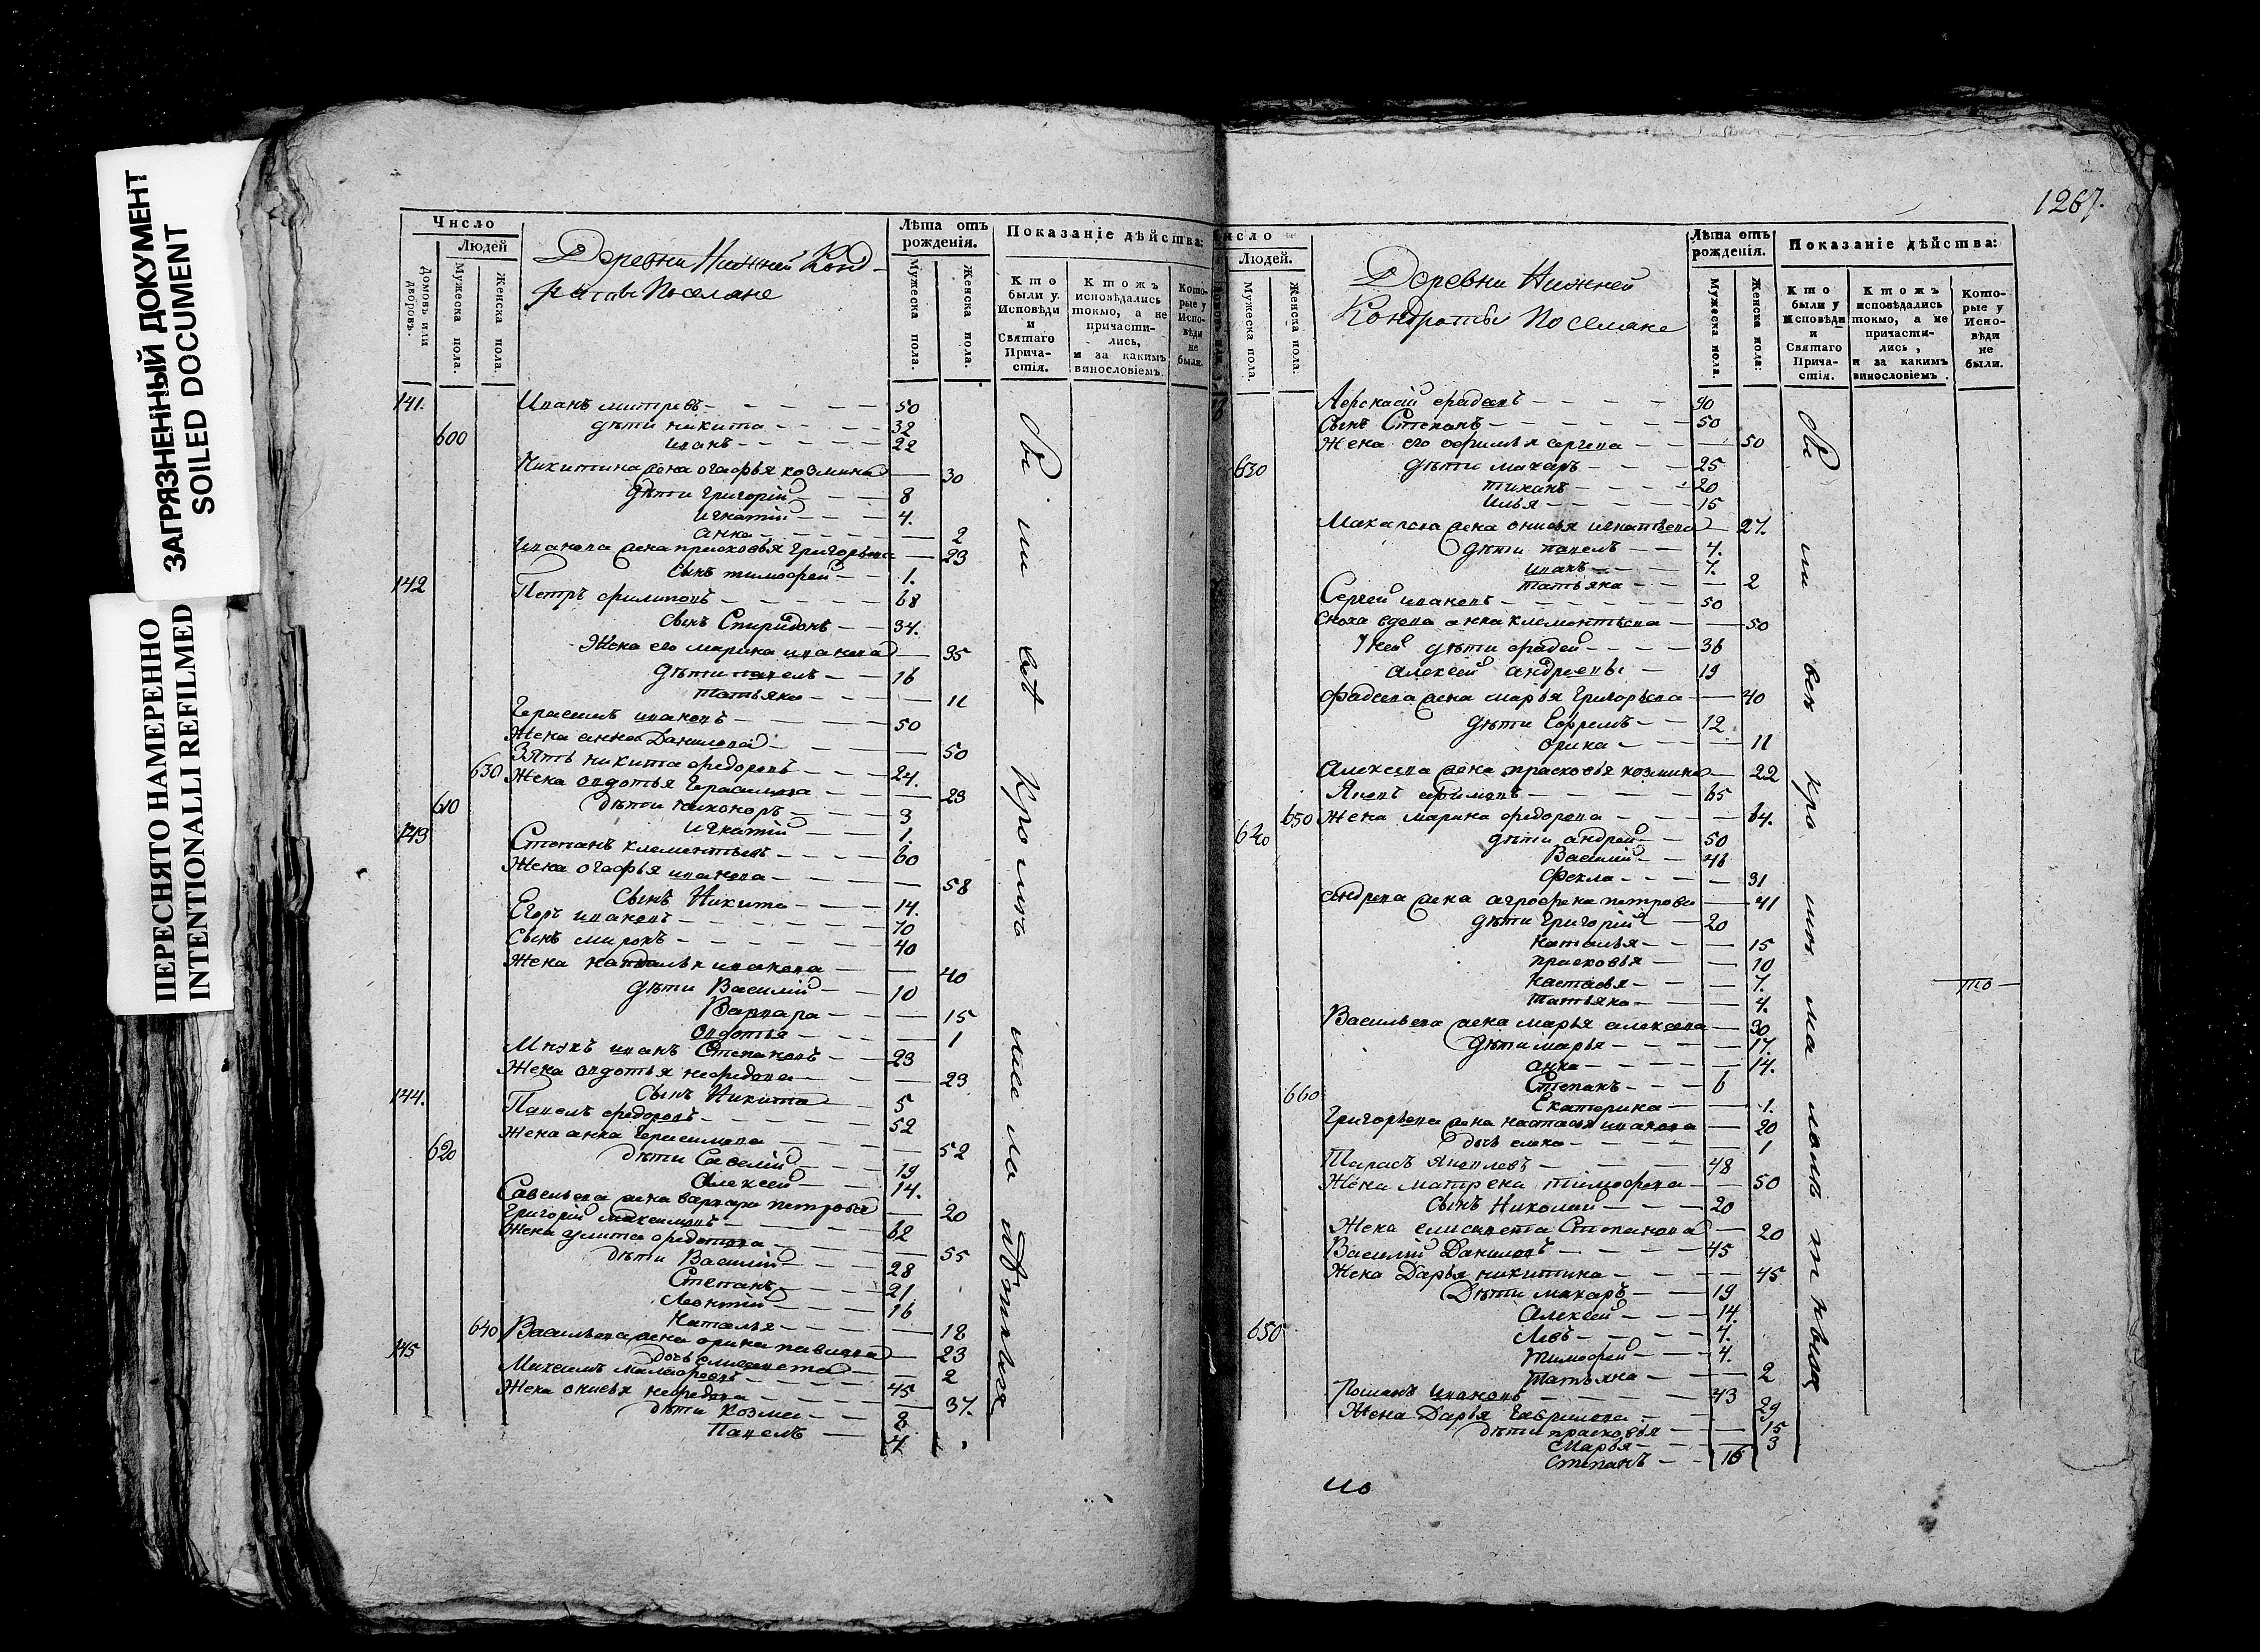 ЗАГРЯЗНЕННЫЙ ДОКУМЕНТ
SOILED DOCUMENT
ПЕРЕСНЯТО НАМЕРЕННО
INTENTIONALLI REFILMED
Число
Людей
Домовъ или дворовъ.
Мужеска пола.
Женска пола.
Деревни Нижней Конд-
ратовы Поселяне
Лѣта отъ рожденія.
Мужеска пола.
Женска пола.
Показаніе дѣйства:
Кто были у Исповѣди и Святаго Причастія.
Ктожъ исповѣдались токмо, а не причастились, и за какимъ винословіемъ.
Которые у Исповѣди не были.
141. Иванъ митревъ 50
дѣти никита 32
600 иванъ 22
Никитина жена огафья козмина 30
дѣти григорій 8
игнатій 4.
анна 2
Иванова жена прасковья григорьева 23
сынъ тимофей 1.
142 Петръ филиповъ 68
сынъ Спиридонъ 34.
Жена его марина иванова 35
дѣти павелъ 16
татьяна 11
Герасимъ ивановъ 50
Жена анна Данилова 50
Зять никита федоровъ 24.
630 Жена овдотья герасимова 23
610 дѣти никоноръ 3
игнатій 1.
143 Степанъ клементьевъ 60
Жена огафья иванова 58
Сынъ Никита 14.
Егоръ ивановъ 70
Сынъ миронъ 40
Жена наталья иванова 40
дѣти Василій 10
Варвара 15
овдотья 1
Внукъ иванъ Степановъ 23
Жена овдотья нефедова 23
Сынъ Никита 5
144. Павелъ федоровъ 52
Жена анна герасимова 52
620 дѣти Савелій 19
Алексей 14.
Савельева жена варвара петрова 20
Григорій максимовъ 62
Жена улита федотова 55
дѣти Василій 28
Степанъ 21
Леонтій 16
Наталья 18
640 Васильева жена орина павлова 23
дочь елисавета 2
145 Максимъ тимофеевъ 45
Жена онисья нефедова 37.
дѣти Козма 8
Павелъ 4
1267.
Число
Людей.
Мужеска пола.
Женска пола.
Деревни Нижней
Кондратовы Поселяне
Лѣта отъ рожденія.
Мужеска пола.
Женска пола:
Показаніе дѣйства:
Кто были у Исповѣди и Святаго Причастія.
Ктожъ исповѣдались токмо, а не причастились, и за какимъ винословіемъ
Которые у Исповѣди не были.
Сынъ Степанъ 50
Жена его офимья сергеева 50
630 дѣти макаръ 25
тихонъ 20
илья 15
Макарова жена онисья игнатьева 27.
дѣти павелъ 4.
иванъ 7.
татьяна 2
Сергей ивановъ 50
Сноха вдова анна клементьева 50
У ней дѣти фадей 36
алексей андреевы 19
Фадеева жена марья григорьева 40
дѣти Ефремъ 12
орина 11
Алексеева жена прасковья козмина 22
Яковъ ефимовъ 65
650 Жена марина федорова 64.
640 дѣти андрей 50
Василій 46
Фекла 31
Андреева жена агрофена петрова 41
дѣти Григорій 20
наталья 15
прасковья 10
настасья 7.
татьяна 4.
Васильева жена марья алексеева 30
дѣти марья 17.
анна 14.
Степанъ 6
660 Екатерина 1.
Григорьева жена настасья иванова 20
дочь елена 1
Тарасъ Яковлевъ 48
Жена матрена тимофеева 50
Сынъ Николай 20
Жена елисавета Степанова 20
Василій Даниловъ 45
Жена Дарья никитина 45
Дѣти макаръ 19
Алексей 14.
650 Левъ 7.
Тимофей 4.
Татьяна 2
Романъ Ивановъ 43
Жена Дарья Гаврилова 29
дѣти прасковья 15
марья 3
Степанъ 16